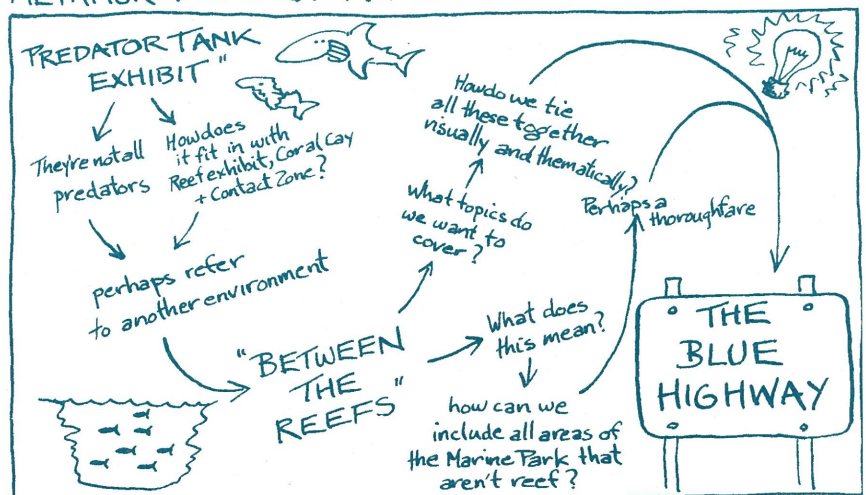 PREDATOR TANK
EXHIBIT"
They're not all
predators
How does
it fit in with
Reef exhibit, Coral Cay
+ Contact Zone?
perhaps refer
to another environment
"BETWEEN
THE
REEFS"
What topics do
we want to
cover?
How do we tie
all these together
visually and thematically?
What does
this mean?
how can we
include all areas of
the Marine Park that
aren't reef?
Perhaps a
thoroughfare
THE
BLUE
HIGHWAY